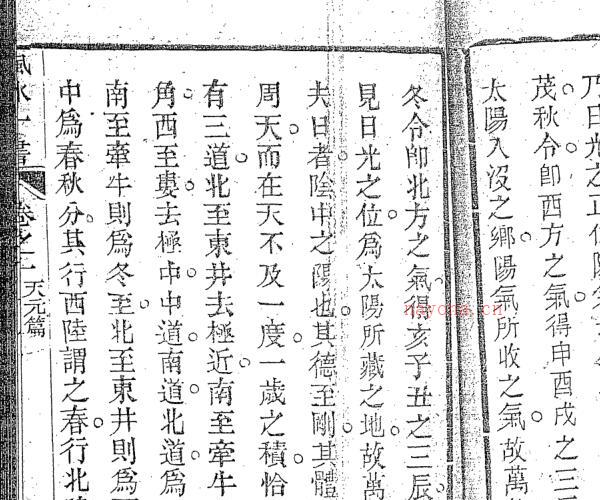 乃日光之正位
茂秋令卽西方之氣得申酉戌之三
太陽入沒之鄉陽氣所收之氣故萬
冬令卽北方之氣得亥子丑之三辰
見日光之位爲太陽所藏之地故萬
夫日者陰中之陽也其德至剛其體
周天而在天不及一度一歲之積恰
有三道北至東井去極近南至牽牛
角西至婁去極中中道南道北道爲
南至牽牛則爲冬至北至東井則爲
中爲春秋分其行西陸謂之春行北
風水一書 卷之二 天元篇
nayona.cn